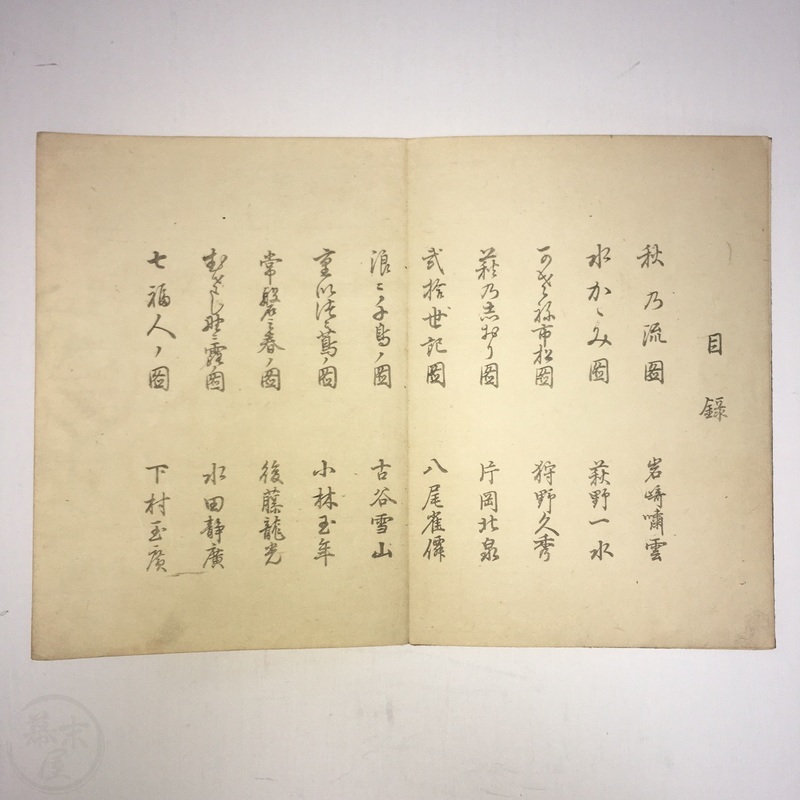 目録
秋乃流図 岩崎嘯雲
水かゝみ図 萩野一水
市松図 狩野久秀
萩乃志おり図 片岡北泉
弐拾世記図 八尾雀僊
浪ニ千鳥ノ図 古谷雪山
ノ図 小林玉年
常磐之春ノ図 後藤龍光
むさし野ニ露ノ図 水田静廣
七福人ノ図 下村玉廣
幕末屋